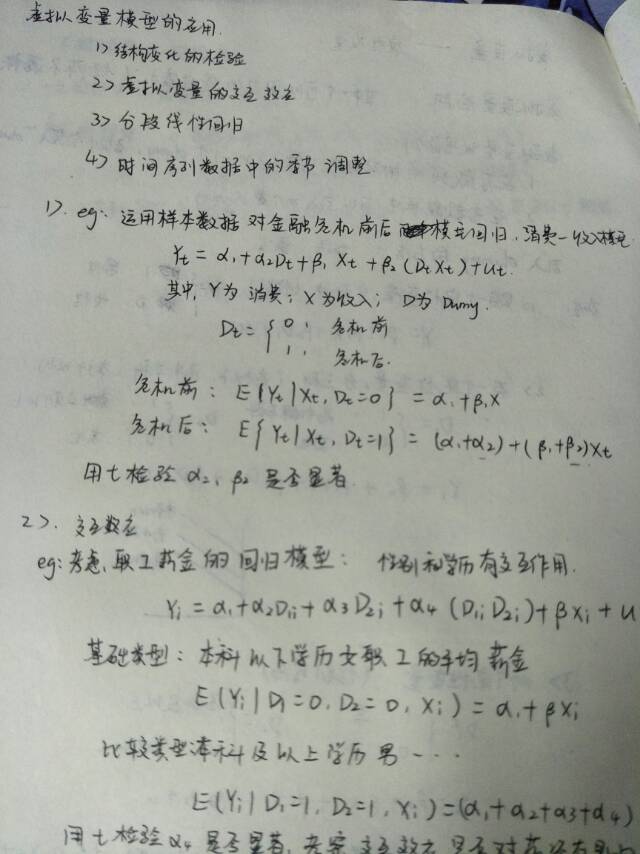 虚拟变量模型的应用.
1> 结构变化的检验
2> 虚拟变量的交互效应
3> 分段线性回归
4> 时间序列数据中的季节调整.
1>. eg: 运用样本数据对金融危机前后模型回归.消费—收入模型
Yt = α1+α2Dt+β1Xt+β2(DtXt)+ut.
其中, Y为消费; X为收入; D为Dumy.
Dt = { 0, 危机前
1, 危机后.
危机前: E{Yt|Xt, Dt=0} = α1+β1X
危机后: E{Yt|Xt, Dt=1} = (α1+α2)+(β1+β2)Xt
用t检验 α2, β2 是否显著.
2>. 交互数应
eg: 考虑职工薪金的回归模型: 性别和学历有交互作用.
Yi = α1+α2D1i+α3D2i+α4(D1iD2i)+βXi+u
基础类型: 本科以下学历女职工的平均薪金
E(Yi|D1=0, D2=0, Xi) = α1+βXi
比较类型:本科及以上学历男 - · · ·
E(Yi|D1=1, D2=1, Xi)=(α1+α2+α3+α4)
用t检验α4是否显著,